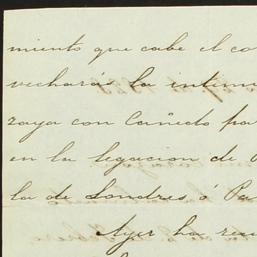 miento que cabe el co
vechará la intim
zaya con Cañedo pa
en la legacion de
la de Londres ó Pa
Ayer ha